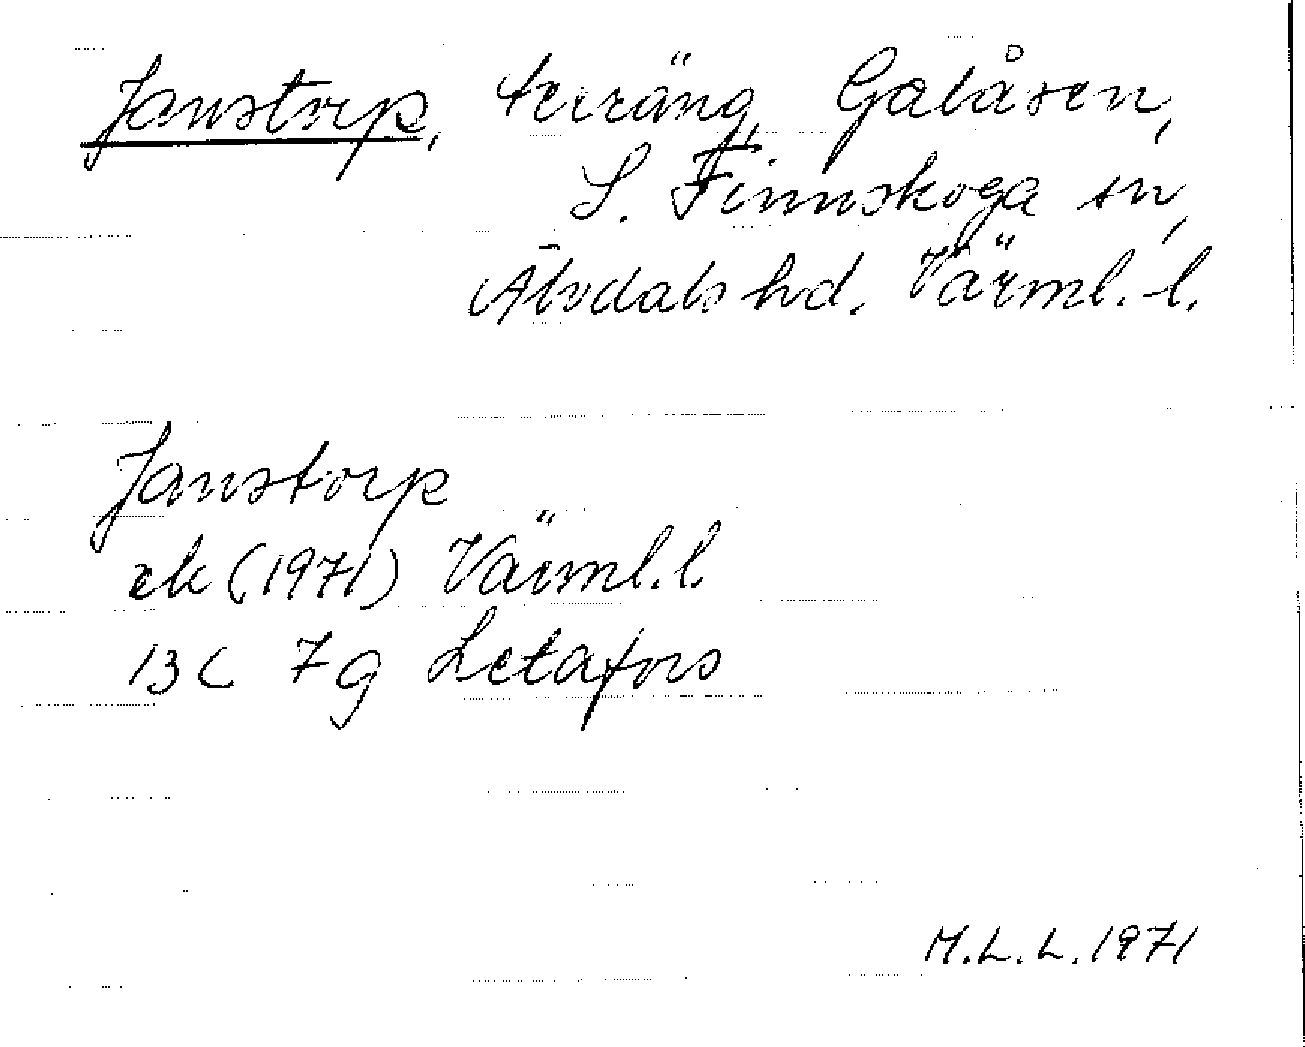 Janstorp, terräng, Galåsen,
S. Finnskoga sn,
Älvdals hd. Värml. l.
Janstorp
ek (1971) Värml. l.
13C 7g Letafors
M.L.L. 1971